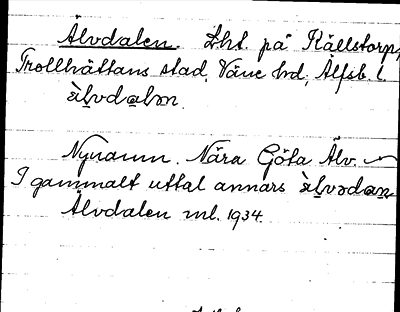 Älvdalen. Lht. på Källstorp,
Trollhättans stad, Väne hd, Älfsb. l.
Nynamn. Nära Göta Älv.
I gammalt uttal annars
Älvdalen ml. 1934.